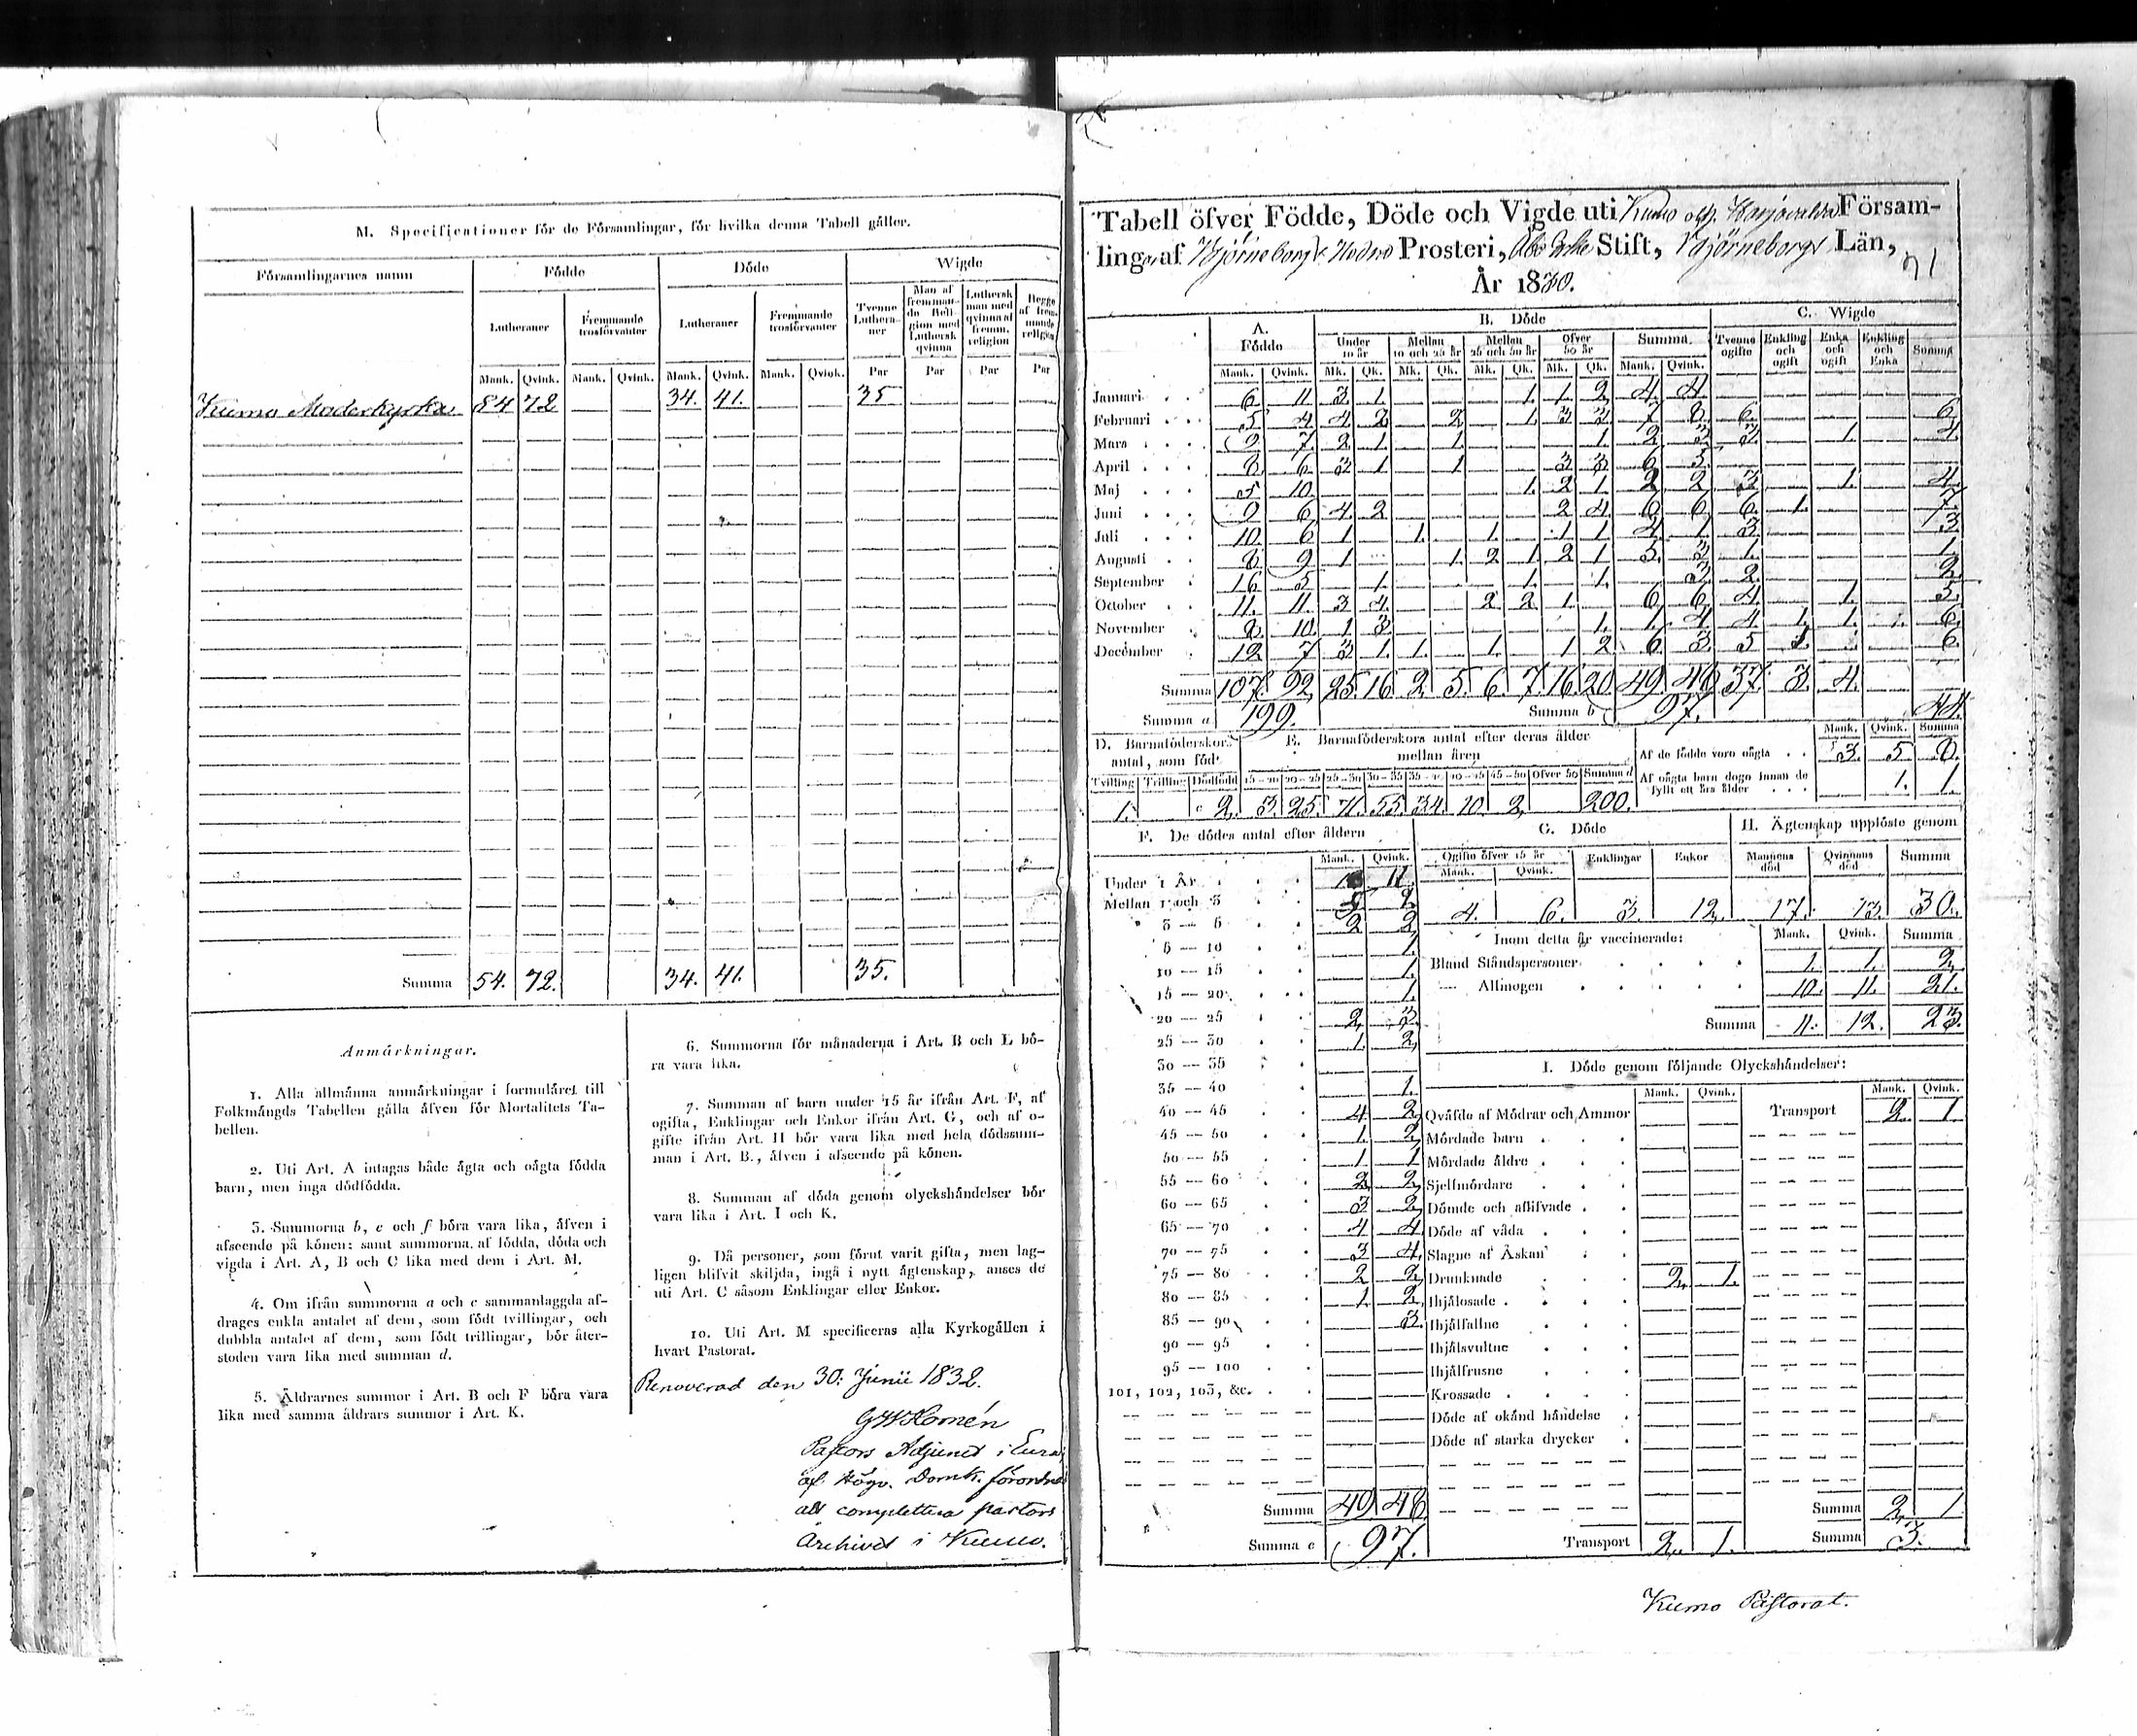 M. Specificationer för de Församlingar, för hvilka denna Tabell gäller.
Församlingarnes namn Födde Döde Wigde
Lutheraner Fremmande trosförvanter Lutheraner Fremmande trosförvanter Tvenne Lutheraner Man af fremmande Religion med Luthersk qvinna Luthersk man med qvinna af fremm. religion Begge af fremmande religion
Mank. Qvink. Mank. Qvink. Mank. Qvink. Mank. Qvink. Par Par Par Par
Kumo Moderkyrka 54 72 34. 41. 35
Summa 54. 72. 34. 41. 35.
Anmärkningar.
1. Alla allmänna anmärkningar i formuläret till
Folkmängds Tabellen gälla äfven för Mortalitets Ta-
bellen.
2. Uti Art. A intagas både ägta och oägta födda
barn, men inga dödfödda.
3. Summorna b, e och f böra vara lika, äfven i
afseende på könen; samt summorna af födda, döda och
vigda i Art. A, B och C lika med dem i Art. M.
4. Om ifrån summorna a och c sammanlaggda af-
drages enkla antalet af dem, som födt tvillingar, och
dubbla antalet af dem, som födt trillingar, bör åter-
stoden vara lika med summan d.
5. Åldrarnes summor i Art. B och F böra vara
lika med samma åldrars summor i Art. K.
6. Summorna för månaderna i Art. B och L bö-
ra vara lika.
7. Summan af barn under 15 år ifrån Art. F, af
ogifta, Enklingar och Enkor ifrån Art. G, och af o-
gifte ifrån Art. H bör vara lika med hela dödssum-
man i Art. B., äfven i afseende på könen.
8. Summan af döda genom olyckshändelser bör
vara lika i Art. I och K.
9. Då personer, som förut varit gifta, men lag-
ligen blifvit skiljda, ingå i nytt ägtenskap, anses de
uti Art. C såsom Enklingar eller Enkor.
10. Uti Art. M specificeras alla Kyrkogällen i
hvart Pastorat.
Renoverad den 30: Junii 1832.
Pastors Adjunct i Eura,
af Högv. Domk. förordnad
att complettera pastors
Archivet i Kumo.
Tabell öfver Födde, Döde och Vigde uti Kumo och Harjavalda Försam-
lingar af Björneborgs Nedre Prosteri, Åbo Erke Stift, Björneborgs Län,
År 1830.
71
A. Födde B. Döde C. Wigde
Under 10 år Mellan 10 och 25 år Mellan 25 och 50 år Öfver 50 år Summa Tvenne ogifte Enkling och ogift Enka och ogift Enkling och Enka Summa
Mank. Qvink. Mk. Qk. Mk. Qk. Mk. Qk. Mk. Qk. Mank. Qvink.
Januari 6 11 3 1 1. 1. 2 4 4
Februari 5 4 4 2 2 1. 3 3 7 8 6. 6.
Mars 9 7. 2 1 1. 1. 2 3 3. 1. 4.
April 8. 6 3 1 1 3 3 6 5
Maj 5 10. 1. 2 1. 2 2 3 1. 4.
Juni 9 6 4 2 2 4 6 6 6 1. 7.
Juli 10. 6 1 1. 1. 1 1 4. 1 3 3
Augusti 8. 9 1 1. 2 1 2 1 5. 3 1. 1.
September 16 5 1. 1. 1. 3 2. 2.
October 11. 11. 3 4. 2 2 1. 6 6 4. 1. 5.
November 8. 10. 1 3 1. 1. 4 4 1. 1. 6.
December 12 7 3 1. 1. 1. 1 2 6. 3 5 1 6
Summa 107. 92. 25. 16 2. 5. 6. 7. 16. 20. 49. 48 37. 3. 4.
Summa a 199. Summa b 97. 44.
D. Barnaföderskors antal, som födt E. Barnaföderskors antal efter deras ålder mellan åren Mank. Qvink. Summa
Af de födde voro oägta 3. 5 8.
Tvilling Trilling Dödfödd 15-20 20-25 25-30 30-35 35-40 40-45 45-50 Öfver 50 Summa d Af oägta barn dogo innan de fyllt ett års ålder 1. 1.
1. c 2. 3. 25. 71. 55. 34. 10. 2. 200.
F. De dödes antal efter åldern G. Döde H. Ägtenskap upplöste genom
Mank. Qvink. Ogifte öfver 15 år Enklingar Enkor Mannens död Qvinnans död Summa
Mank. Qvink.
Under 1 År 11.
Mellan 1 och 3 2.
3 — 5 2 2 4. 6. 3. 12. 17. 13. 30.
5 — 10 1. Inom detta år vaccinerade: Mank. Qvink. Summa
10 — 15 1. Bland Ståndspersoner 1. 1. 2.
15 — 20 1. — Allmogen 10. 11. 21.
20 — 25 2. 3. Summa 11. 12. 23.
25 — 30 1. 2
30 — 35 I. Döde genom följande Olyckshändelser:
35 — 40 1. Mank. Qvink. Mank. Qvink.
40 — 45 4 2 Qväfde af Mödrar och Ammor Transport 2. 1
45 — 50 1. 2. Mördade barn
50 — 55 1 1 Mördade äldre
55 — 60 2 2 Sjelfmördare
60 — 65 3 2 Dömde och aflifvade
65 — 70 4 4 Döde af våda
70 — 75 3 4 Slagne af Åskan
75 — 80 2 2 Drunknade 2. 1.
80 — 85 1. 2 Ihjälosade
85 — 90 3. Ihjälfallne
90 — 95 Ihjälsvultne
95 — 100 Ihjälfrusne
101, 102, 103, &c. Krossade
Döde af okänd händelse
Döde af starka drycker
Summa 49 48 Summa 2. 1
Summa e 97. Transport 2. 1. Summa 3.
Kumo Pastorat.